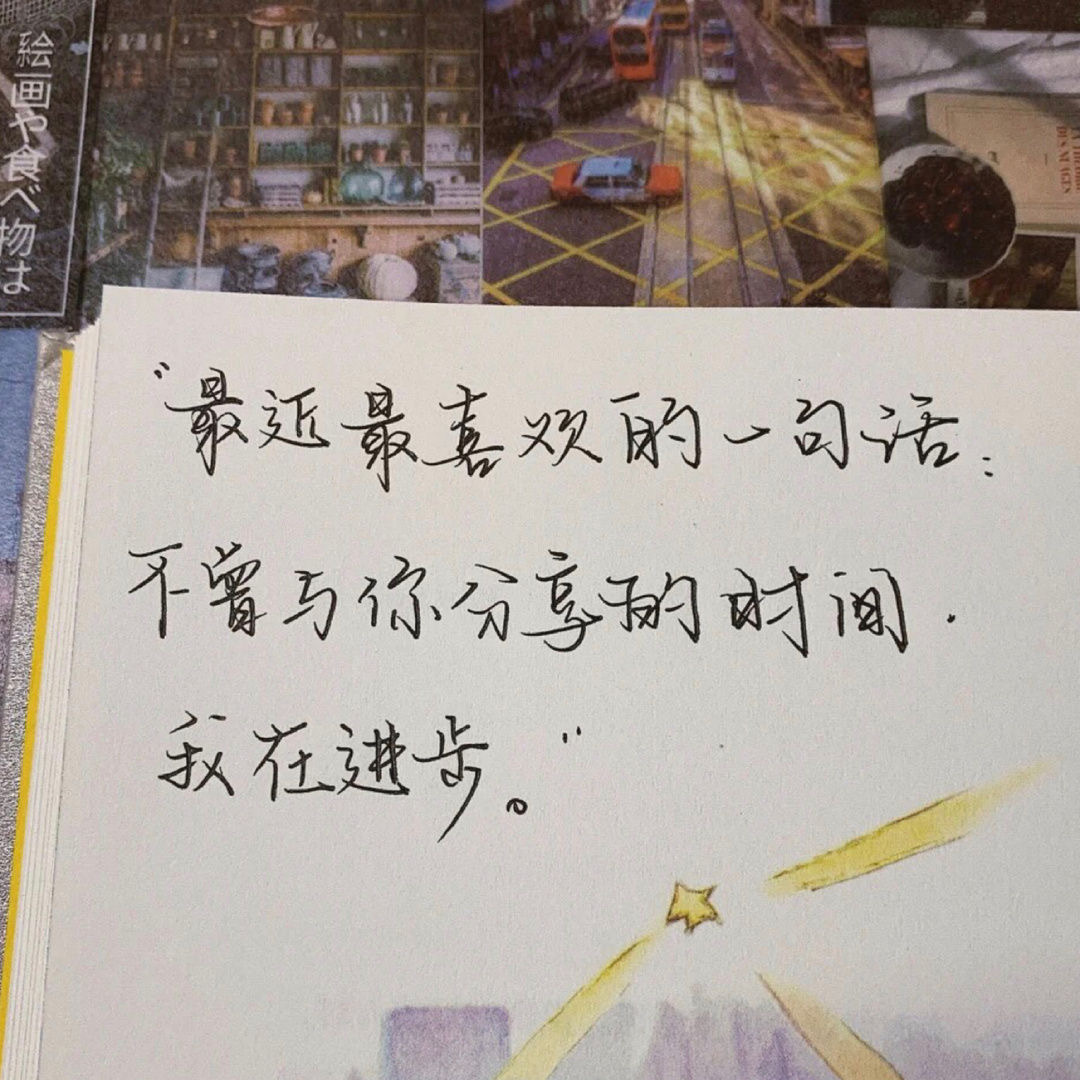 絵画や食べ物は
“最近最喜欢的一句话:
不曾与你分享的时间.
我在进步。”